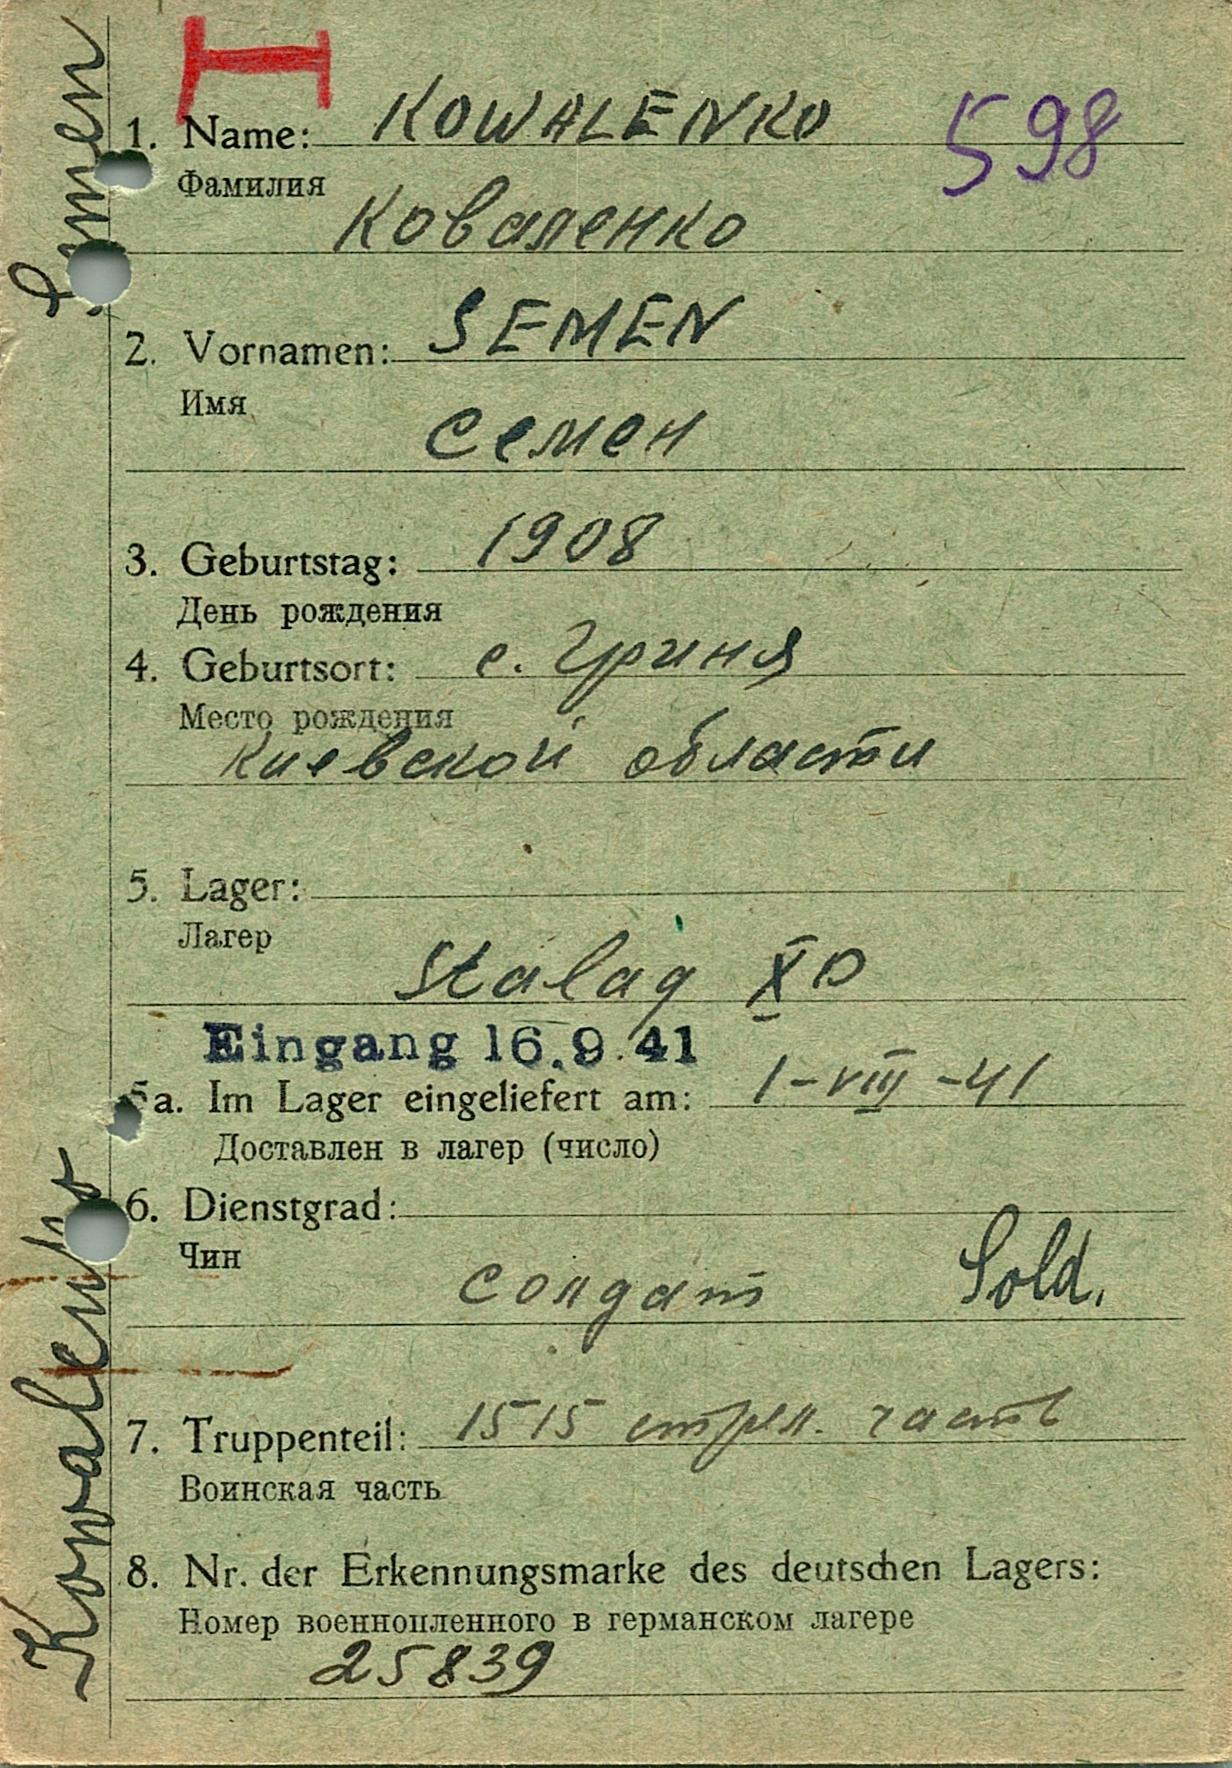 I
1. Name: KOWALENKO 598
Фамилия
Коваленко
2. Vornamen: SEMEN
Имя
Семен
3. Geburtstag: 1908
День рождения
4. Geburtsort: с. Гриня
Место рождения
Киевской области
5. Lager:
Лагер
Stalag XD
Eingang 16.9.41
5a. Im Lager eingeliefert am: 1-VIII-41
Доставлен в лагер (число)
6. Dienstgrad:
Чин
солдат Sold.
7. Truppenteil: 1515 стрел. часть
Воинская часть
8. Nr. der Erkennungsmarke des deutschen Lagers:
Номер военнопленного в германском лагере
25839
Kowalenko Semen